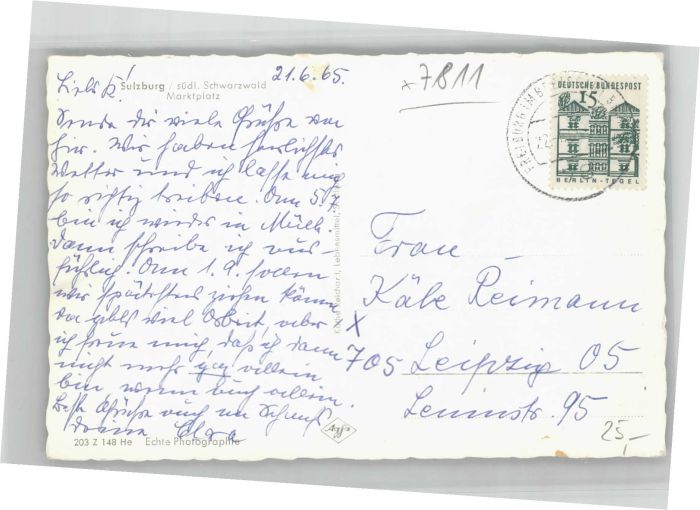 Sulzburg / südl. Schwarzwald
Marktplatz
21.6.65.
x 7811
Liebe K!
Sende dir viele Grüße von
hier. Wir haben herrlichstes
Wetter und ich lasse mich
so richtig treiben. Am 5.7.
bin ich wieder in Müllh.
Dann schreibe ich aus-
führlich. Am 1.9. sollen
wir spätestens ziehen können
da gibts viel Arbeit, aber
ich freue mich, daß ich dann
nicht mehr ganz allein
bin, wenn auch allein.
Beste Grüße auch an
deine
203 Z 148 He Echte Photographie
Agfa
DEUTSCHE BUNDESPOST
15
BERLIN-TEGEL
FREIBURG IM BREISGAU
Frau
Käte Reimann
X
705 Leipzig O5
Leninstr. 95
25,-